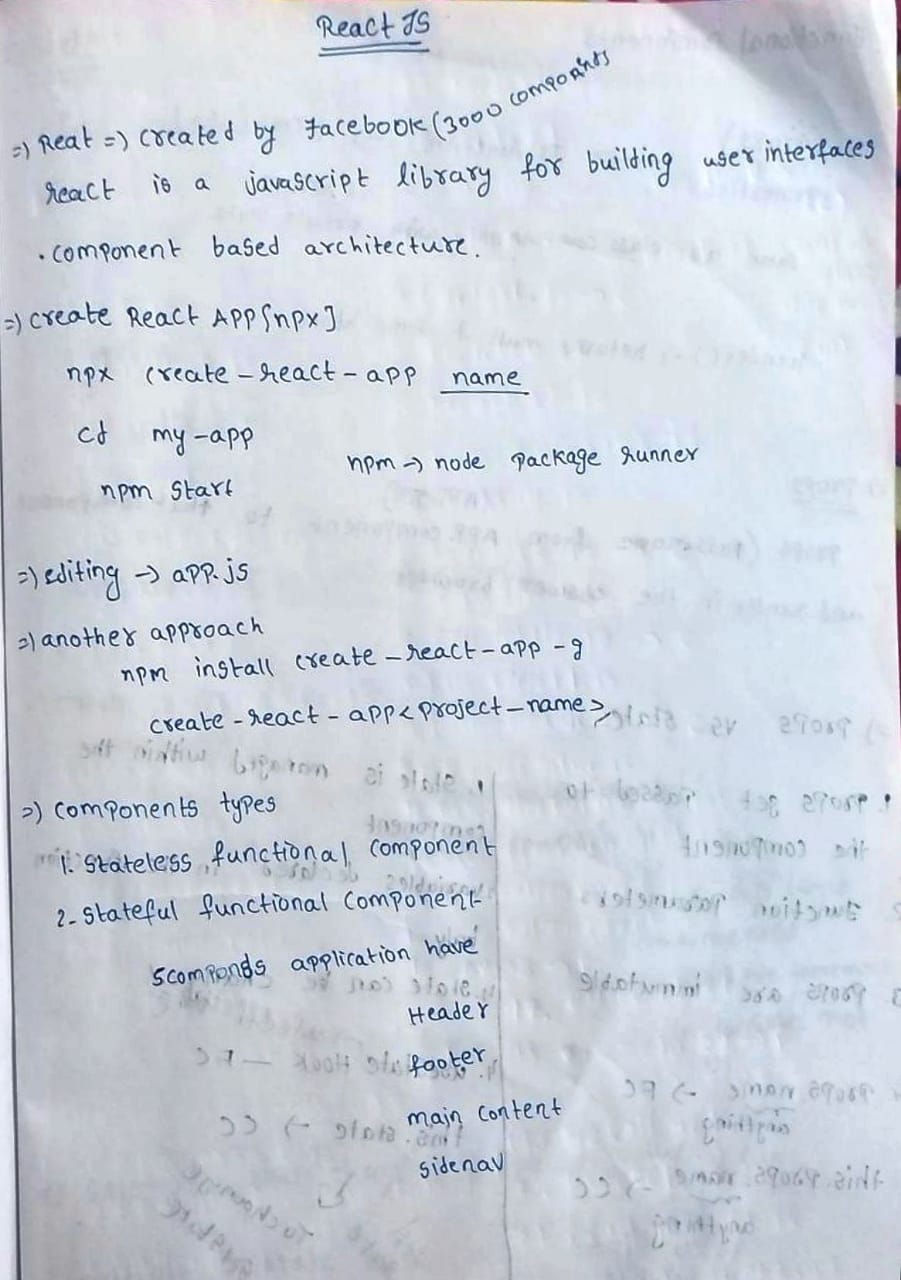 React JS
=) Reat =) created by facebook (3000 components
react is a javascript library for building user interfaces
. component based architecture.
=) create React APP [npx]
npx create-react-app name
cd my-app
npm -> node package runner
npm start
=) editing -> app.js
=) another approach
npm install create-react-app -g
create-react-app <project-name>
=) components types
1. Stateless functional component
2. Stateful functional component
5componds application have
Header
footer
main content
sidenav